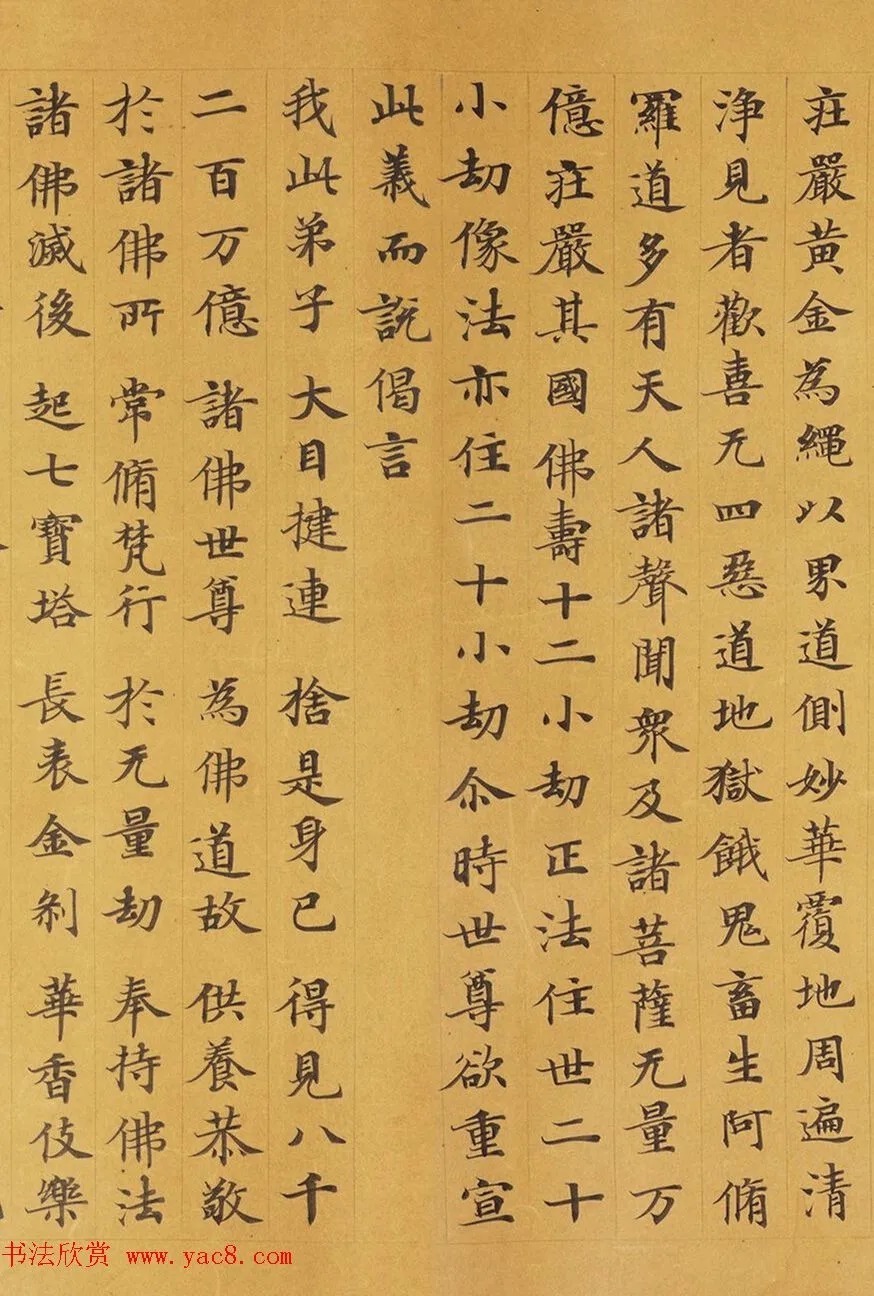 疰嚴黄金為繩以界道側妙華覆地周遍清
淨見者歡喜无四惡道地獄餓鬼畜生阿脩
羅道多有天人諸聲聞衆及諸菩薩无量万
億疰嚴其國佛壽十二小劫正法住世二十
小劫像法亦住二十小劫尒時世尊欲重宣
此義而說偈言
我此弟子 大目揵連 捨是身已 得見八千
二百万億 諸佛世尊 為佛道故 供養恭敬
於諸佛所 常脩梵行 於无量劫 奉持佛法
諸佛滅後 起七寶塔 長表金刹 華香伎樂
书法欣赏 www.yac8.com